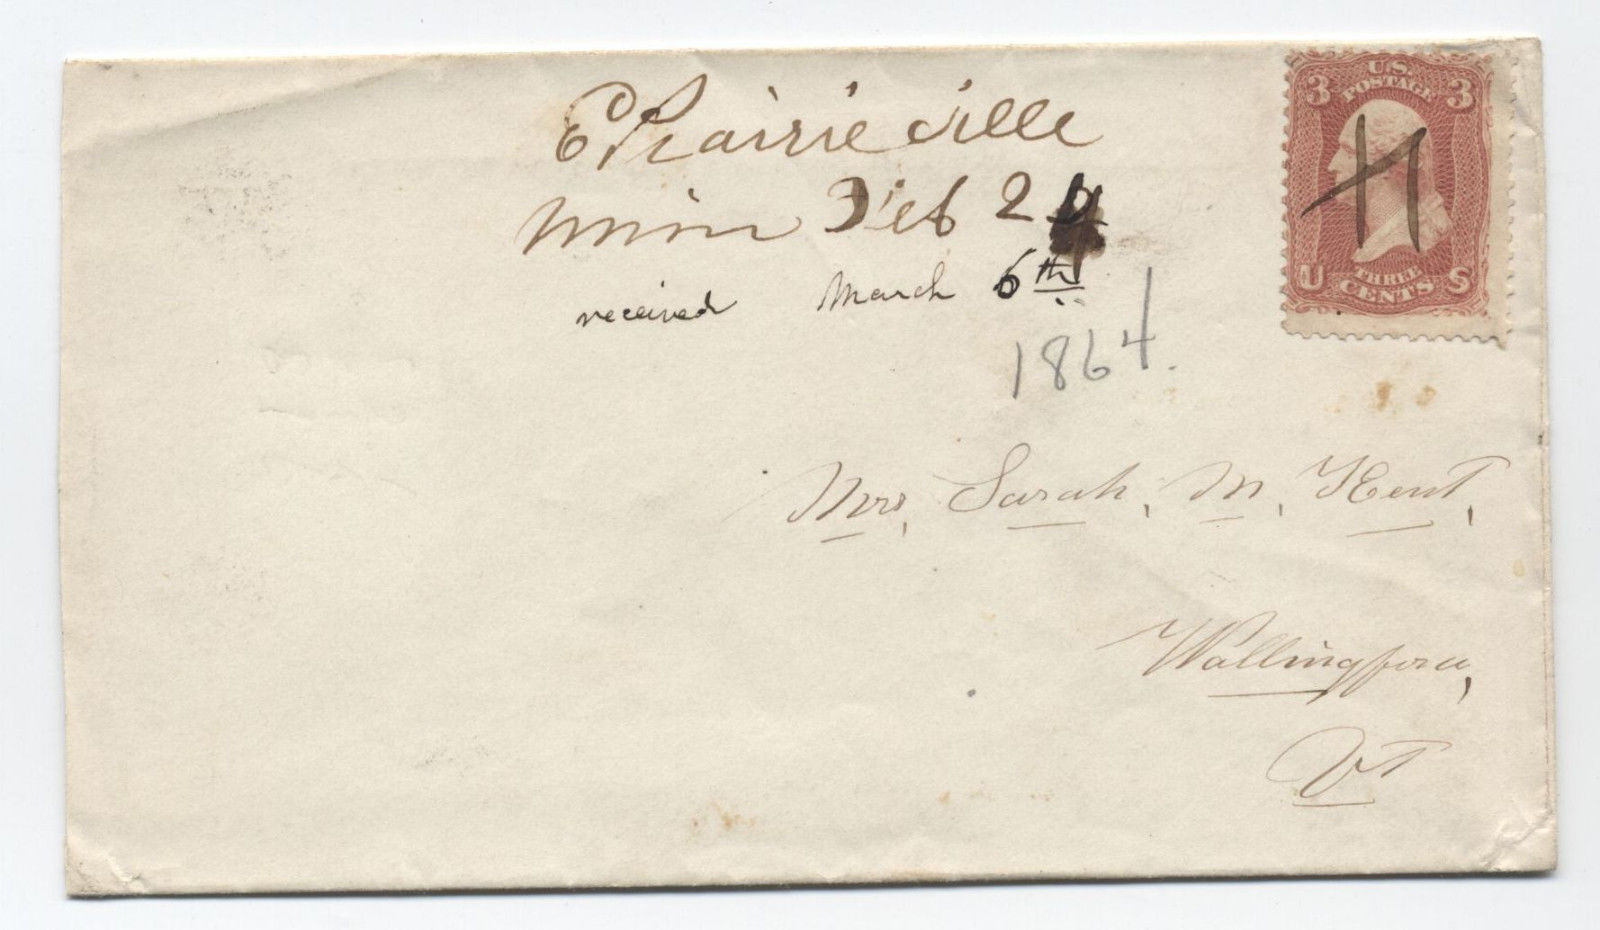 E Prairieville
Minn Feb 24
received March 6th
1864.
3 U.S. POSTAGE 3
U THREE CENTS S
Mrs, Sarah, M, Kent,
Wallingford,
Vt